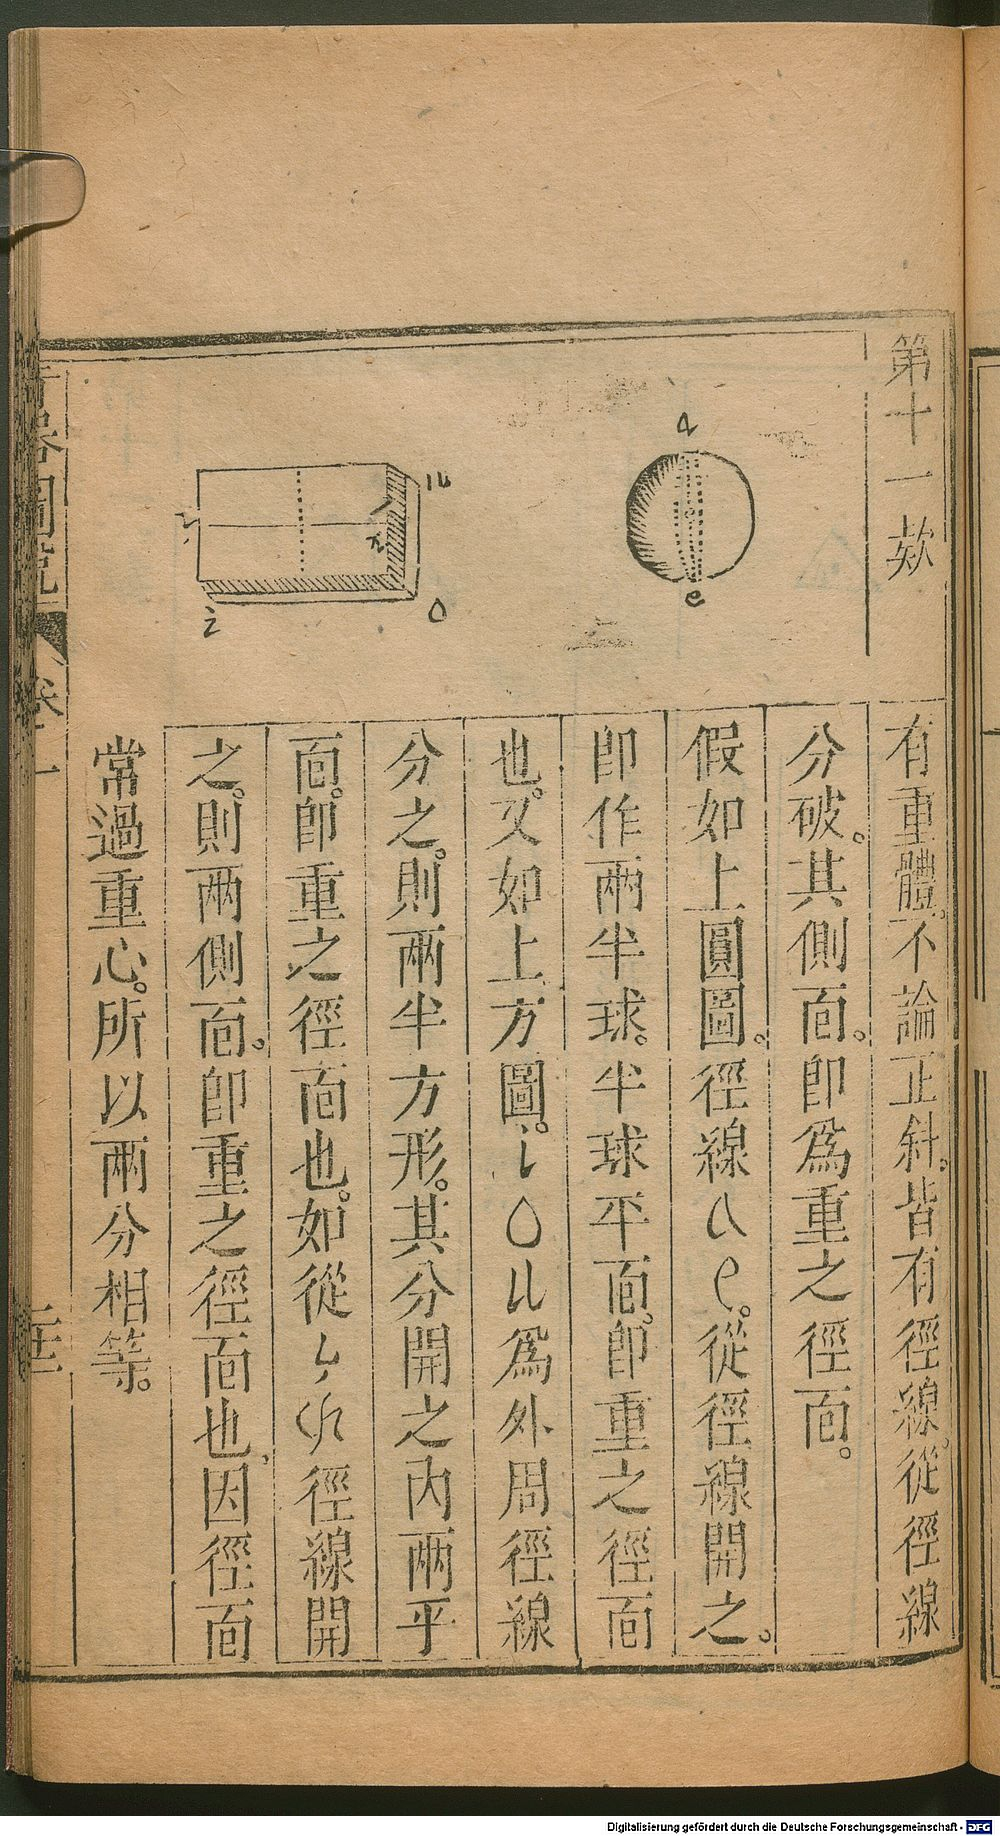 第十一欸
有重體。不論正斜。皆有徑線。從徑線
分破。其側面。卽爲重之徑面。
假如上圓圖。徑線 a e。從徑線開之。
卽作兩半球。半球平面。卽重之徑面
也。又如上方圖。i o u爲外周徑線
分之。則兩半方形。其分開之內兩平
面。卽重之徑面也。如從徑線開
之。則兩側面。卽重之徑面也、因徑面
常過重心。所以兩分相等。
a
e
u
o
i
器圖說
卷一
Digitalisierung gefördert durch die Deutsche Forschungsgemeinschaft - DFG